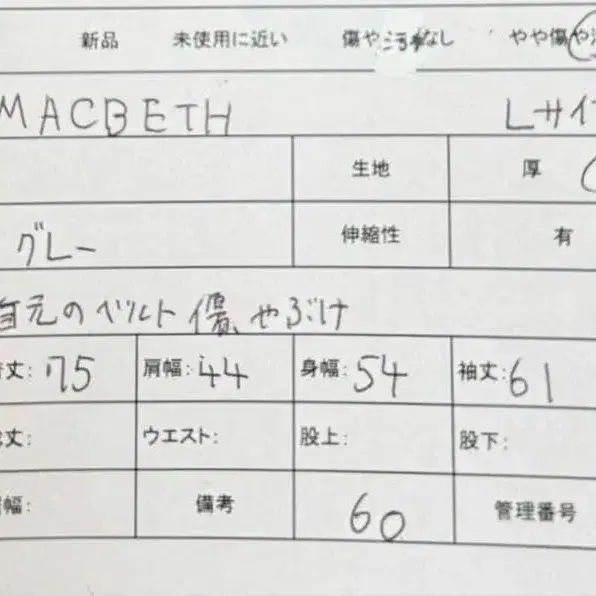 新品 未使用に近い 傷や汚れなし やや傷や
MACBETH Lサイ
生地 厚
グレー 伸縮性 有
首元のベルト 傷、やぶけ
丈: 75 肩幅: 44 身幅: 54 袖丈: 61
丈: ウエスト: 股上: 股下:
幅: 備考 60 管理番号